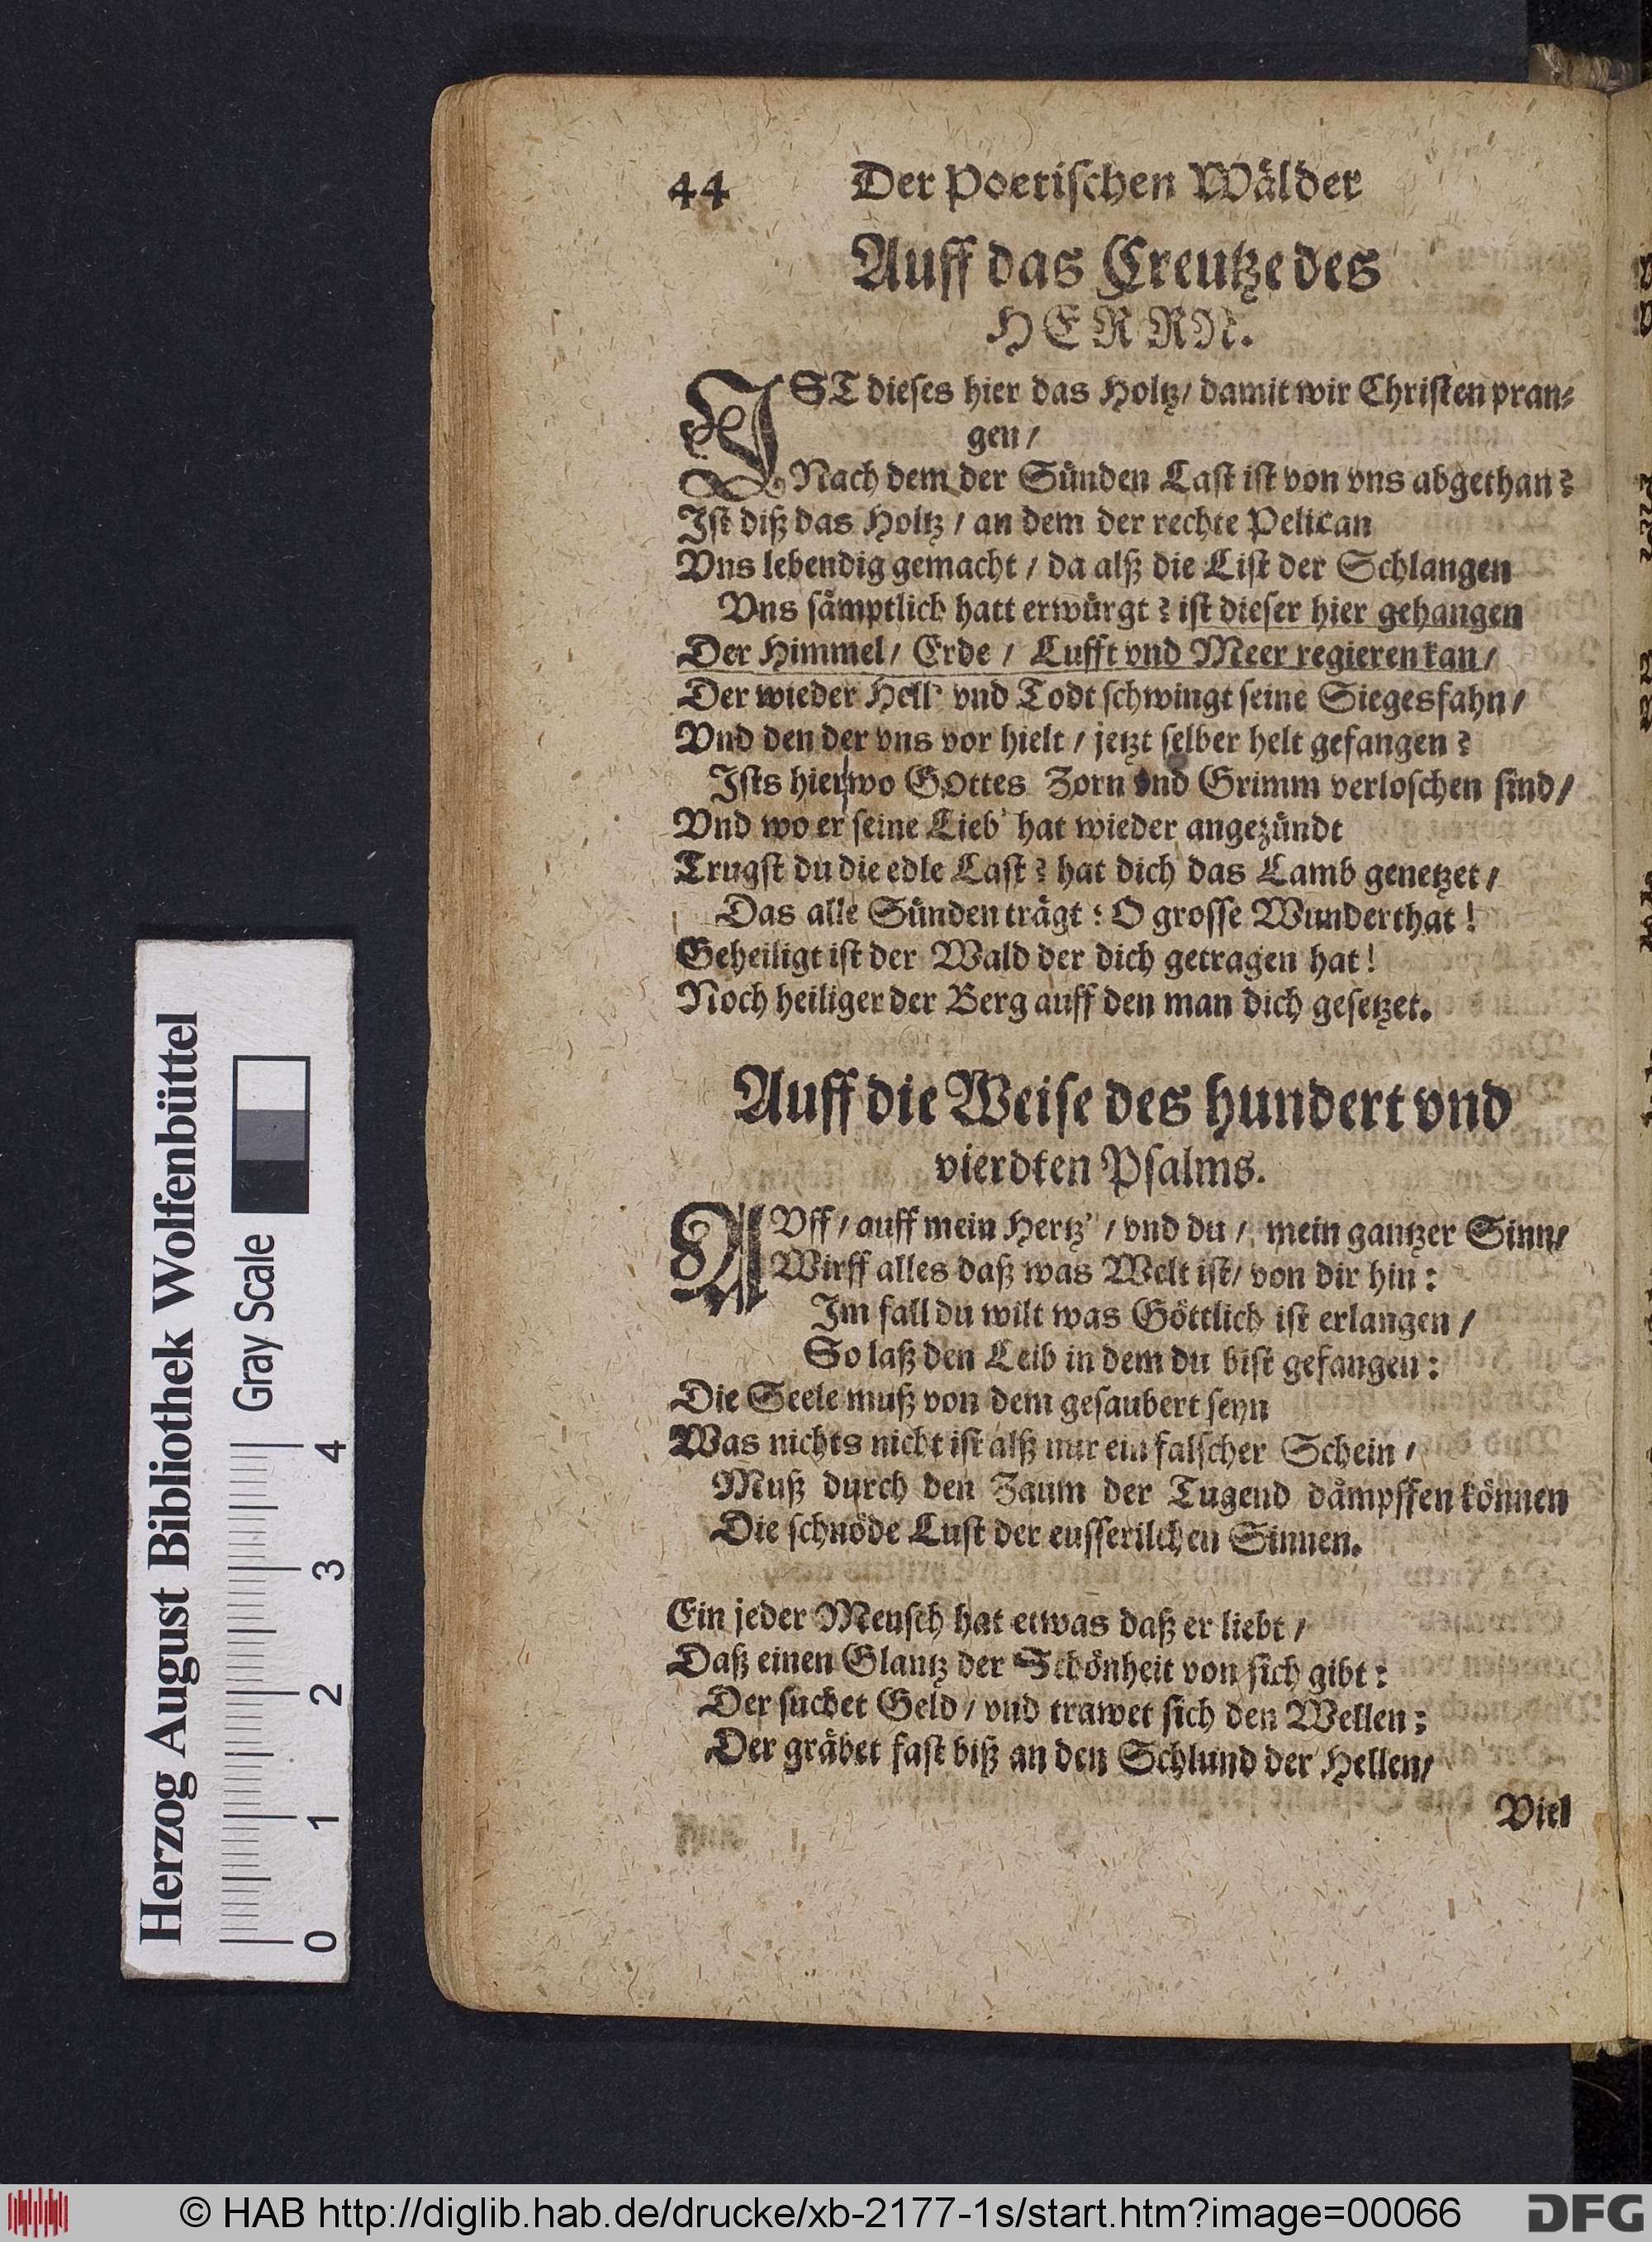 44 Der Poetiſchen Wälder
Auff das Creutze des
HERRN.
IST dieſes hier das Holtz/ damit wir Chriſten pran⸗
gen/
Nach dem der Sünden Laſt iſt von vns abgethan?
Iſt diß das Holtz / an dem der rechte Pelican
Vns lebendig gemacht / da alß die Liſt der Schlangen
Vns ſämptlich hatt erwürgt? iſt dieſer hier gehangen
Der Himmel/ Erde / Lufft vnd Meer regieren kan/
Der wieder Hell' vnd Todt ſchwingt ſeine Siegesfahn/
Vnd den der vns vor hielt / jetzt ſelber helt gefangen?
Iſts hier/wo GOttes Zorn vnd Grimm verloſchen ſind/
Vnd wo er ſeine Lieb' hat wieder angezündt
Trugſt du die edle Laſt? hat dich das Lamb genetzet/
Das alle Sünden trägt: O groſſe Wunderthat!
Geheiligt iſt der Wald der dich getragen hat!
Noch heiliger der Berg auff den man dich geſetzet.
Auff die Weiſe des hundert vnd
vierdten Pſalms.
AVff/ auff mein Hertz' / vnd du / mein gantzer Sinn/
Wirff alles daß was Welt iſt/ von dir hin:
Im fall du wilt was Göttlich iſt erlangen /
So laß den Leib in dem du biſt gefangen:
Die Seele muß von dem geſaubert ſeyn
Was nichts nicht iſt alß nur ein falſcher Schein /
Muß durch den Zaum der Tugend dämpffen können
Die ſchnöde Luſt der euſſerilchen Sinnen.
Ein jeder Menſch hat etwas daß er liebt /
Daß einen Glantz der Schönheit von ſich gibt:
Der ſuchet Geld / vnd trawet ſich den Wellen;
Der gräbet faſt biß an den Schlund der Hellen/
Viel
Herzog August Bibliothek Wolfenbüttel
Gray Scale
0 1 2 3 4
© HAB http://diglib.hab.de/drucke/xb-2177-1s/start.htm?image=00066
DFG